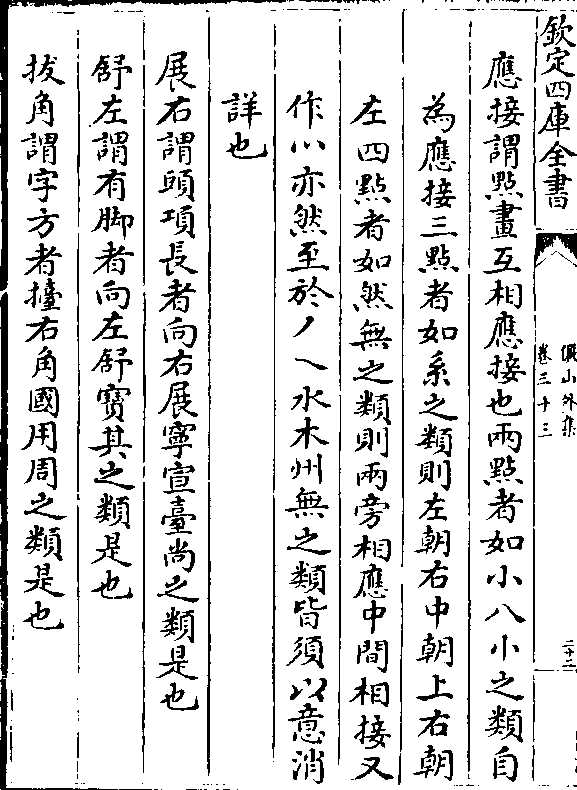 欽定四庫全書
儼山外集
卷三十三
二十二
應接謂點畫互相應接也兩點者如小八小之類自
為應接三點者如糸之類則左朝右中朝上右朝
左四點者如然無之類則兩旁相應中間相接又
作灬亦然至於丿乀水木州無之類皆須以意消
詳也
展右謂頭項長者向右展寧宣臺尚之類是也
舒左謂有脚者向左舒寶其之類是也
拔角謂字方者擡右角國用周之類是也